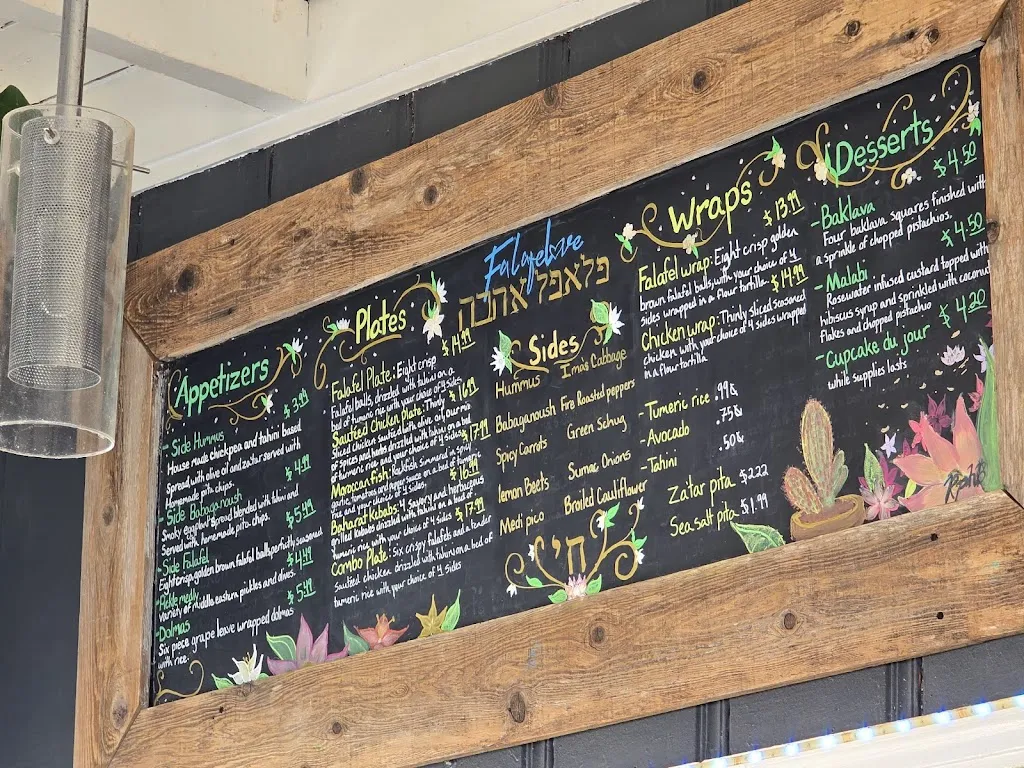 Appetizers
$ 3.99
- Side Hummus
House made chickpea and tahini based
Spread with olive oil and za'tar served with
Homemade pita chips.
$ 4.99
- Side Babaganoush
Smoky eggplant spread blended with tahini and
Served with homemade pita chips.
$ 5.49
- Side Falafel
Eight crisp, golden brown falafel balls, perfectly seasoned
$ 4.49
Pickle medly
Variety of middle eastern pickles and olives.
$ 5.49
- Dolmas
Six piece grape leave wrapped dolmas
with rice.
Plates
$ 14.99
Falafel Plate: Eight crisp
Falafel balls, drizzled with tahini on a
bed of tumeric rice with your choice of 4 sides
$ 16.99
Sauteed Chicken Plate: Thinly
Sliced chicken sauteed with olive oil, our mix
of spices and herbs drizzled with tahini on a bed
of tumeric rice and your choice of 4 sides.
$ 17.99
Moroccan fish: Rockfish simmered in spicy
garlic, tomatoes and pepper sauce on a bed of tumeric
rice and your choice of 4 sides.
$ 16.99
Baharat Kebabs: 4 savory and herbaceous
grilled kebabs drizzled with tahini on a bed of
tumeric rice with your choice of 4 sides
$ 17.99
Combo Plate: Six crispy falafels and a tender
sauteed chicken drizzled with tahini on a bed of
tumeric rice with your choice of 4 sides
Falafelove
פלאפל אהבה
Sides
Hummus
Ima's Cabbage
Babaganoush
Fire Roasted peppers
Spicy Carrots
Green Schug
lemon Beets
Sumac Onions
Medi pico
Broiled Cauliflower
חי
Wraps
$ 13.99
Falafel wrap: Eight crisp golden
brown falafel balls, with your choice of 4
sides wrapped in a flour tortilla.
$ 14.99
Chicken wrap: Thinly sliced seasoned
chicken with your choice of 4 sides wrapped
in a flour tortilla
- Tumeric rice .99¢
- Avocado .75¢
- Tahini .50¢
Za'tar pita $2.22
Sea salt pita $1.99
Desserts
$ 4.50
- Baklava
Four baklava squares finished with
a sprinkle of chopped pistachios.
$ 4.50
- Malabi
Rosewater infused custard topped with
hibiscus syrup and sprinkled with coconut
flakes and chopped pistachio
$ 4.20
- Cupcake du jour
while supplies lasts